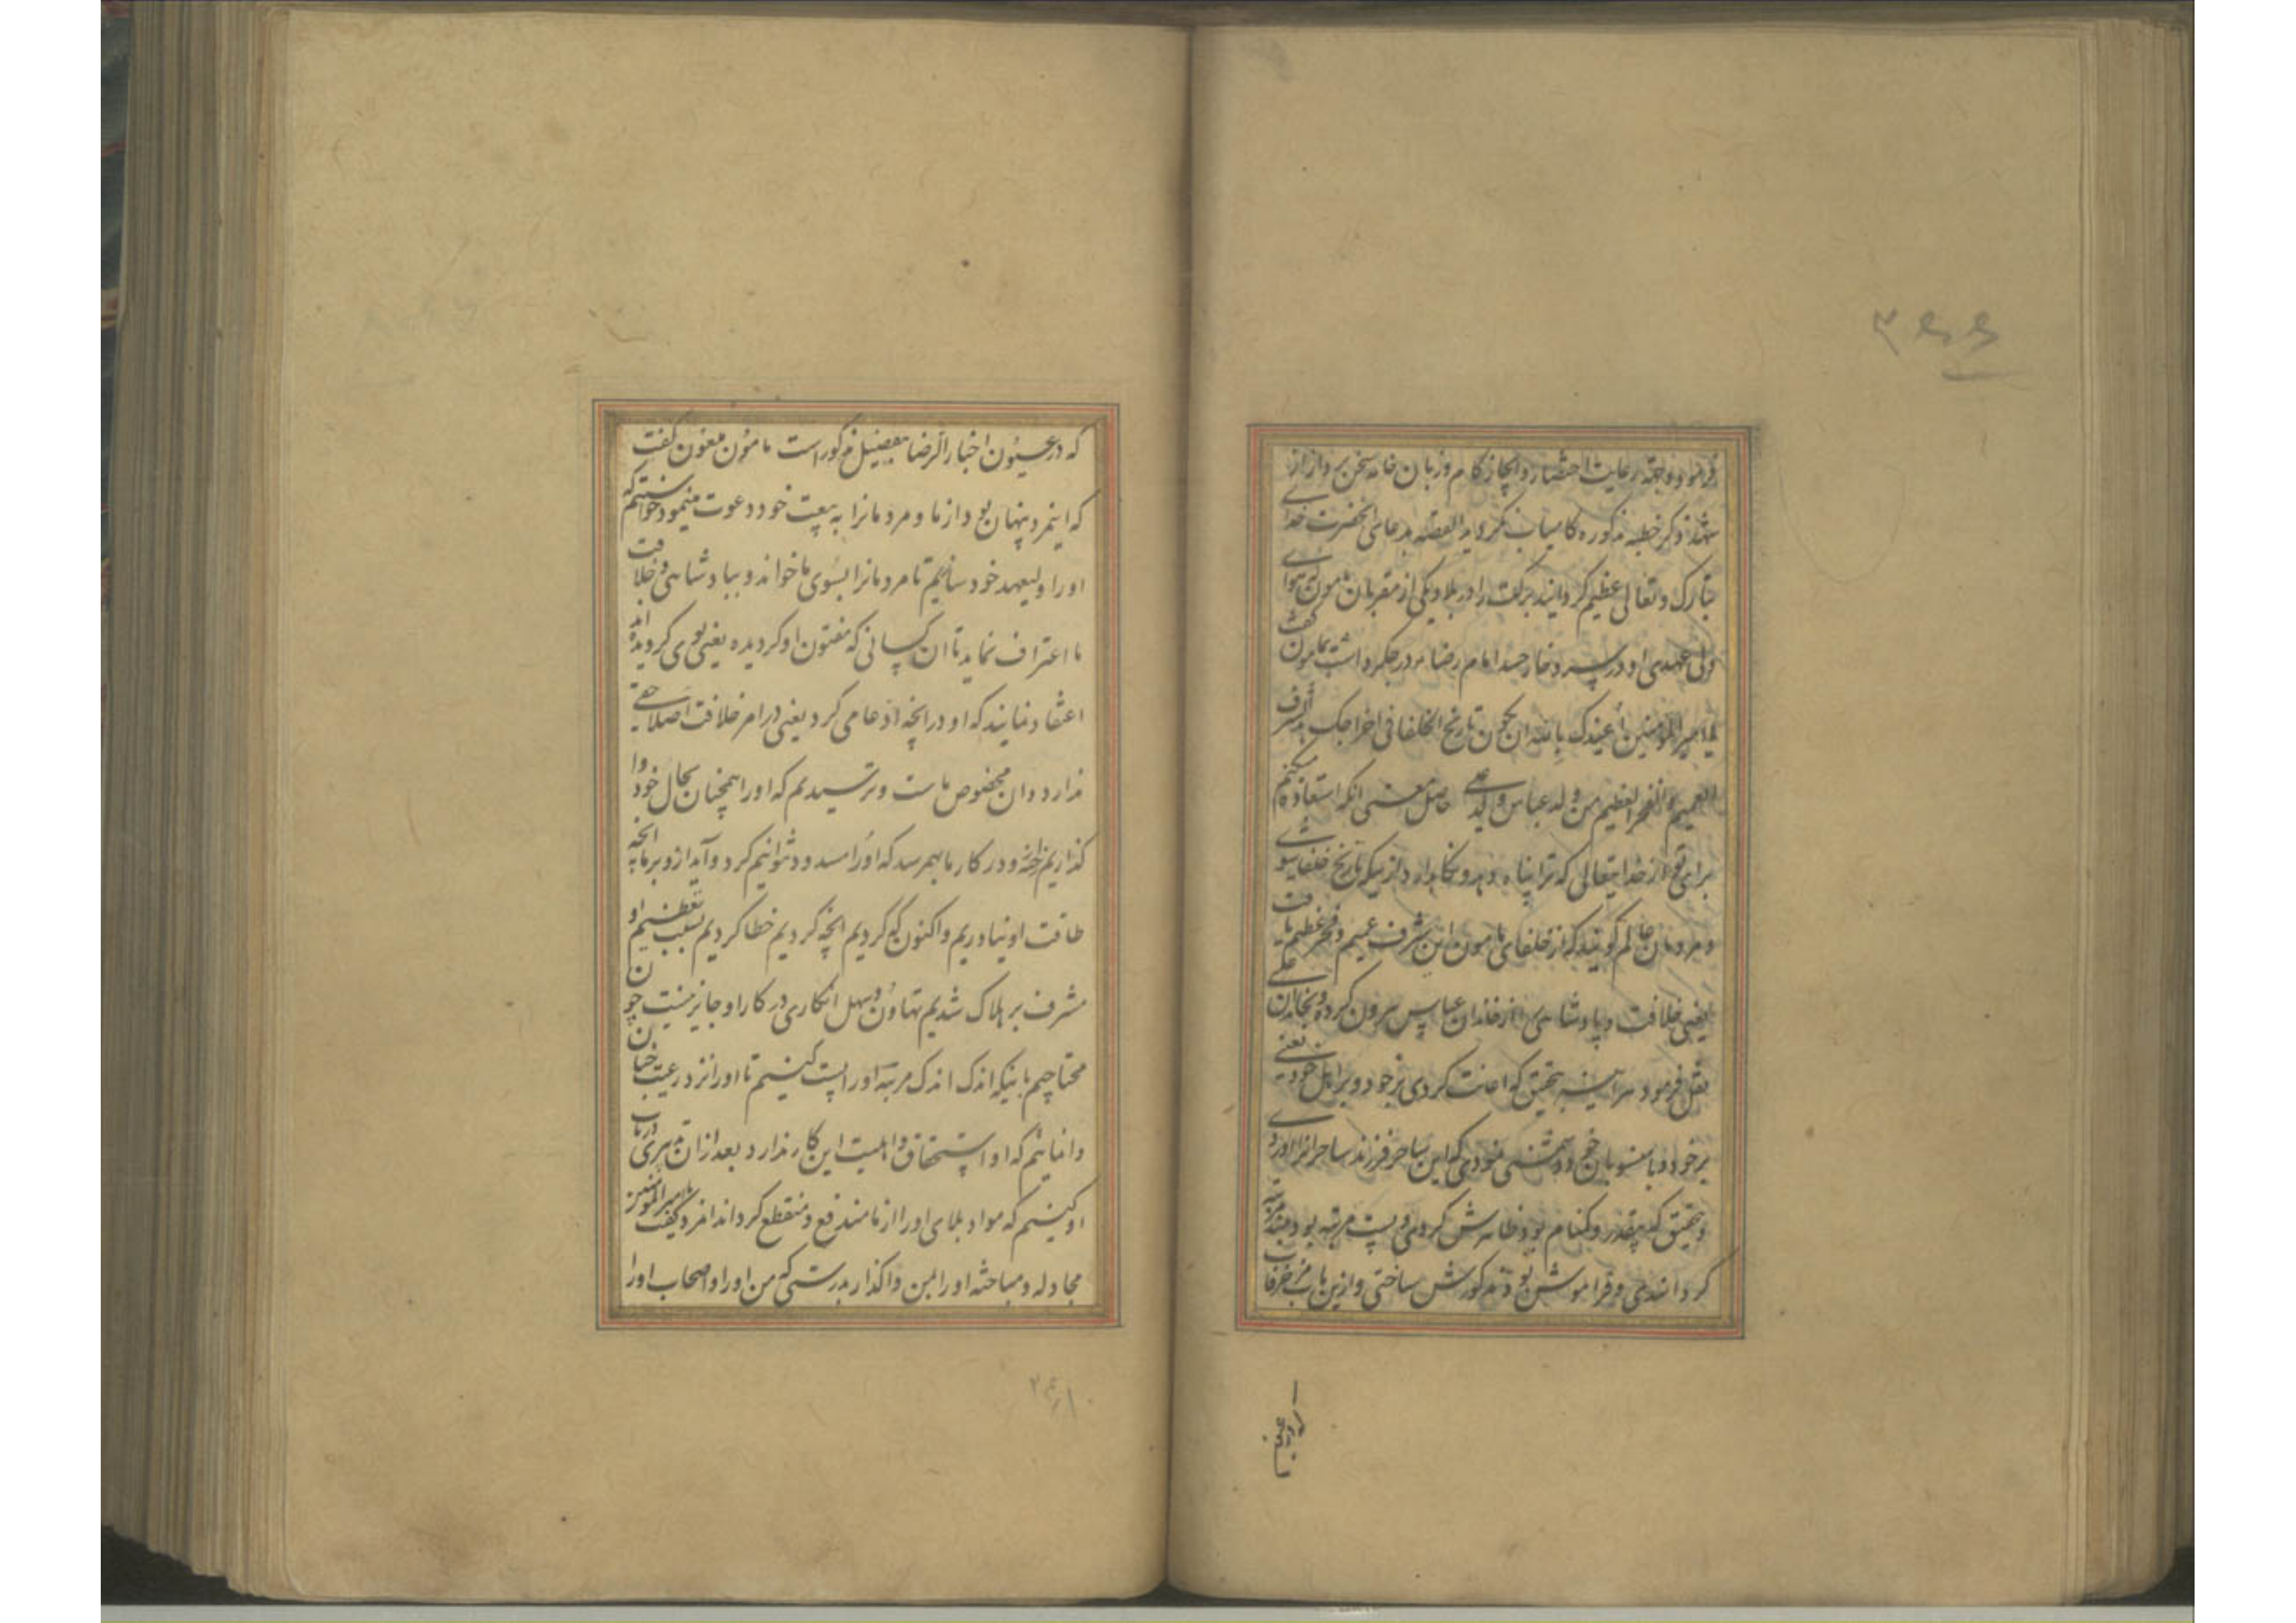 ۳۶۶
فرمود و بجهة رعایت اختصار و ایجاز کام و زبان خامه سخن پرداز از
شهد ذکر خطبه مذکوره کامیاب نکردید القصه بدعای انحضرت خدای
تبارک و تعالی عظیم کردانید برکت را در بلاد و یکی از مقربان مامون که هوای
ولی عهدی او در سر و خار حسد امام رضا در جکر داشت بمامون کفت
یا امیر المؤمنین اعیذک بالله ان تکون تاریخ الخلفا فی اخراجک الشرف
العمیم و الفخر العظیم من ولد عباس و لد علی حاصل معنی انکه استعاذه میکنم
برای تو از خدایتعالی که ترا پناه دهد و نکاه دارد از اینکه تاریخ خلفا شوی
و مردمان عالم کویند که از خلفای مامون این شرف عمیم و فخر عظیم یافت
یعنی خلافت و پادشاهی از خاندان عباس بیرون کرده و بخاندان علی
نقل فرمود هر اینه بتحقیق که اعانت کردی بر خود و بر اهل خود یعنی
بر خود و با منسوبان خود دشمنی نمودی که این ساحر فرزند ساحرانرا اوردی
و بتحقیق که بیقدر و کمنام بود ظاهرش کردی و پست مرتبه بود بلند مرتبه
کردانیدی و فراموش بود مذکورش ساختی و ازین باب مزخرفات
که در عیون اخبار الرضا بتفصیل مذکور است مامون ملعون کفت
که اینمرد پنهان بود از ما و مردمانرا به بیعت خود دعوت مینمود خواستیم که
او را ولیعهد خود سازیم تا مردمانرا بسوی ما خواند و بپادشاهی و خلافت
ما اعتراف نماید تا ان کسانی که مفتون او کردیده یعنی بوی کرویده اند
اعتقاد نمایند که او در انچه ادعا می کرد یعنی در امر خلافت اصلا حقی
ندارد و ان مخصوص ماست و ترسیدیم که او را همچنان بحال خود وا
کذاریم رخنه در کار ما بهم رسد که او را مسدود نتوانیم کرد و آید از و بر ما انچه
طاقت او نیاوریم و اکنون که کردیم انچه کردیم خطا کردیم بسبب تعظیم او
مشرف بر هلاک شدیم تهاون و سهل انکاری در کار او جایز نیست چون
محتاجیم باینکه اندک اندک مرتبه او را پست کنیم تا او را نزد رعیت چنان
وا نمائیم که او استحقاق و اهلیت این کار ندارد بعد از ان تدبیری در باب
او کنیم که مواد بلای او را از ما مندفع و منقطع کرداند انمرد کفت یا امیر المؤمنین
مجادله و مباحثه او را بمن واکذار بدرستی که من او را و اصحاب او را